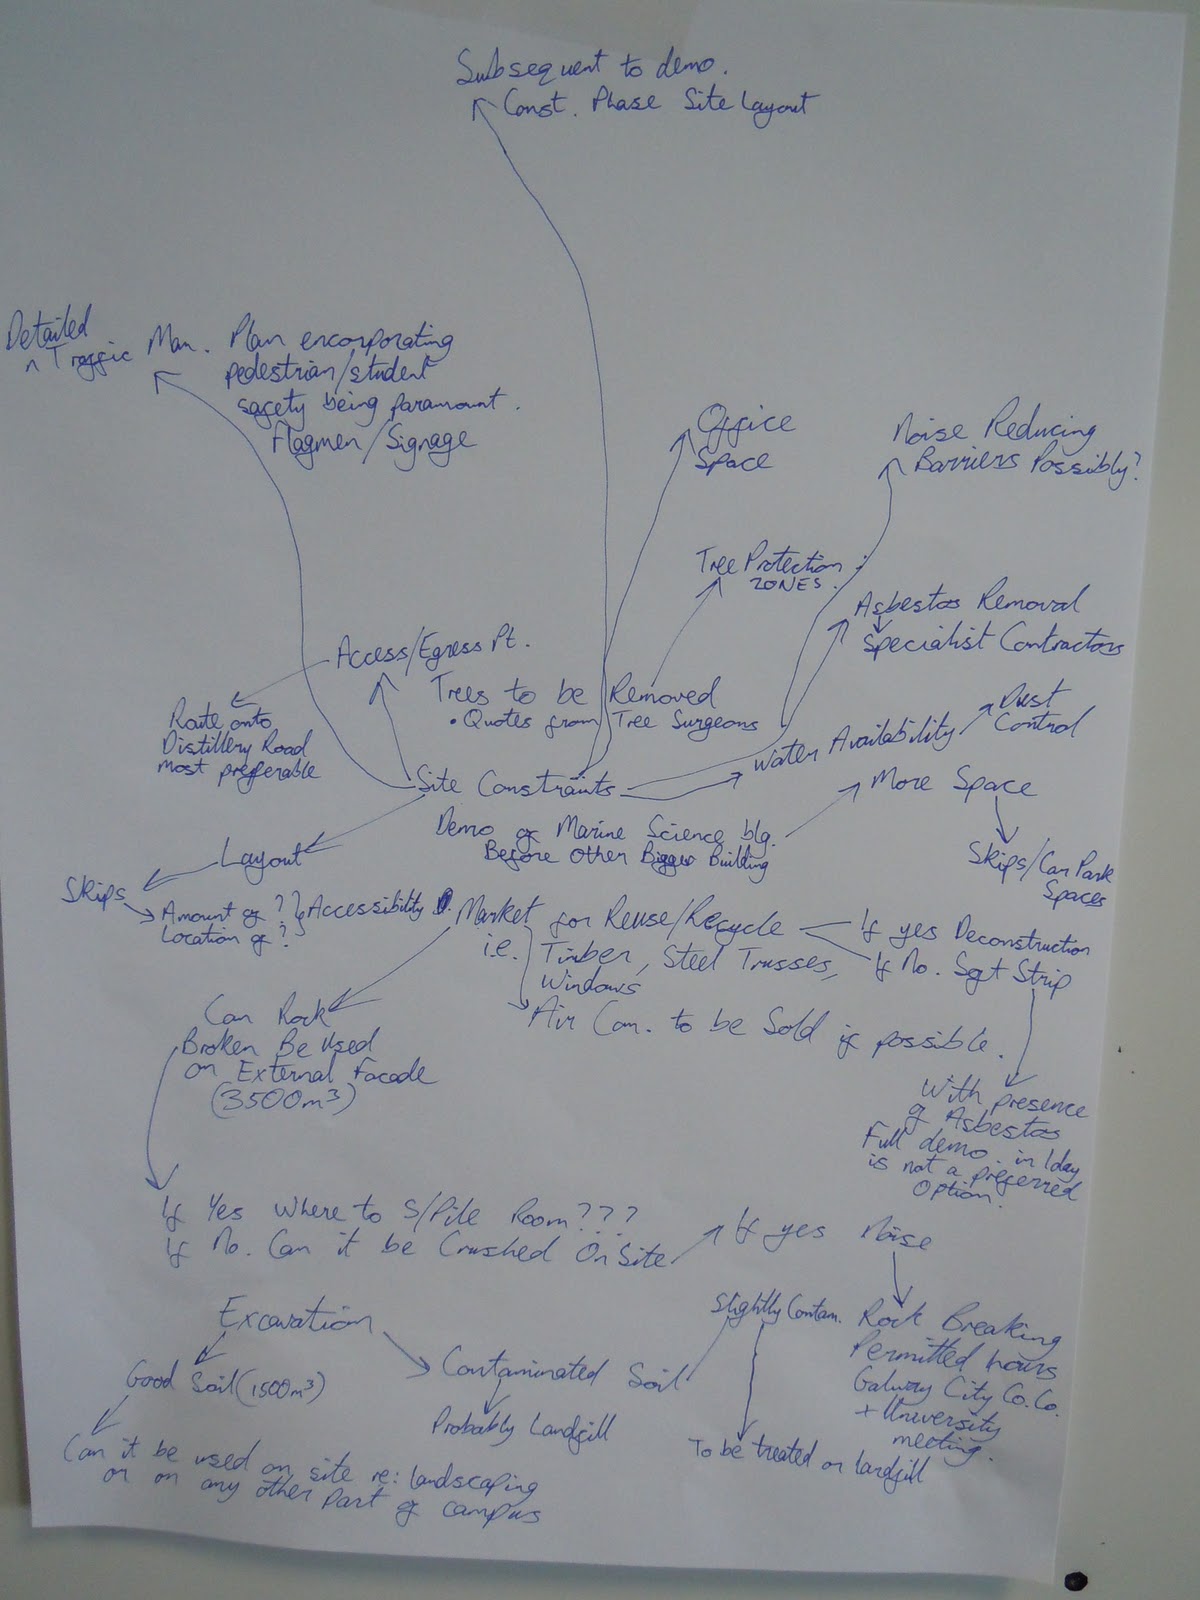 Subsequent to demo.
Const. Phase Site Layout
Detailed
^ Traffic Man. Plan encorporating
pedestrian/student
safety being paramount.
Flagmen/Signage
Office
Space
Noise Reducing
Barriers Possibly?
Tree Protection
ZONES.
Asbestos Removal
Specialist Contractors
Access/Egress Pt.
Route onto
Distillery Road
most preferable
Trees to be Removed
• Quotes from Tree Surgeons
Water Availability
Dust
Control
Site Constraints
More Space
Demo of Marine Science blg.
Before Other Bigger Building
Skips/Car Park
Spaces
Layout
Skips
Amount of ?
Location of ?
Accessibility
Market for Reuse/Recycle
i.e. Timber, Steel Trusses,
Windows
If yes Deconstruction
If No. Soft Strip
Air Con. to be Sold if possible.
Can Rock
Broken Be Used
on External Facade
(3500m³)
With presence
of Asbestos
Full demo. in 1 day
is not a preferred
Option.
If Yes Where to S/Pile Room???
If No. Can it be Crushed On Site
If yes Noise
Excavation
Slightly Contam.
Rock Breaking
Permitted hours
Galway City Co. Co.
+ University
meeting.
Good Soil (1500m³)
Contaminated Soil
Probably Landfill
To be treated or landfill
Can it be used on site re: landscaping
or on any other part of campus